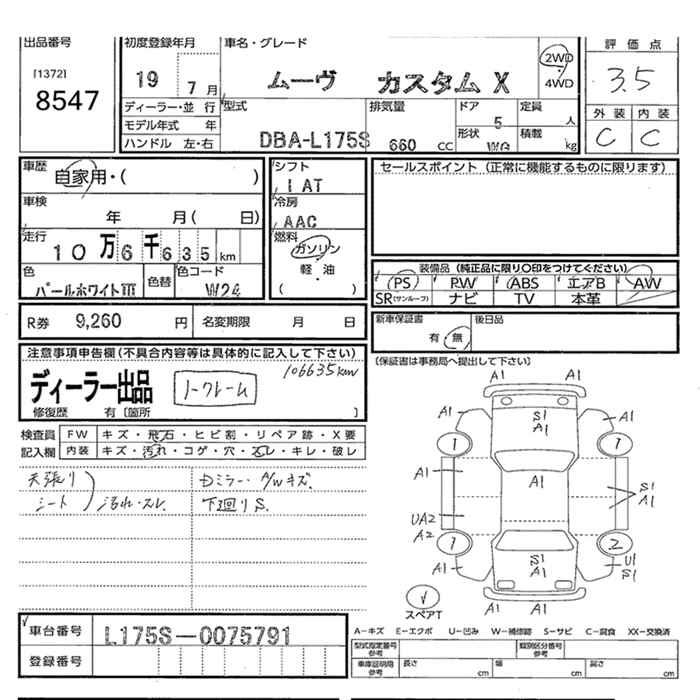 出品番号
[1372]
8547
初度登録年月
19 7月
ディーラー・並 行
モデル年式 年
ハンドル 左・右
車名・グレード
ムーヴ カスタム X
2WD
・
4WD
型式
DBA-L175S
排気量
660 CC
ドア
5
形状
WG
定員
人
積載
kg
評価点
3.5
外装 内装
C C
車歴
自家用・( )
車検
年 月( 日)
走行
10万6千635km
色
パールホワイトIII
色替
色コード
W24
シフト
IAT
冷房
AAC
燃料
ガソリン
・
軽・油
( )
セールスポイント (正常に機能するものに限ります)
装備品 (純正品に限り○印をつけてください)
PS PW ABS エアB AW
SR(サンルーフ) ナビ TV 本革
R券 9,260 円 名変期限 月 日
新車保証書
有・無
後日品
(保証書は事務局へ提出して下さい)
注意事項申告欄 (不具合内容等は具体的に記入して下さい)
106635km
ディーラー出品 ノークレーム
修復歴 有〔箇所 〕
検査員
記入欄
FW キズ・飛石・ヒビ割・リペア跡・X要
内装 キズ・汚れ・コゲ・穴・スレ・キレ・破レ
天張り
シート
汚れ・スレ
Dミラー・A/Wキズ.
下廻りS.
A1 A1
A1 S1 A1
A1
1 1
A1 A1 S1
A1
UA2
A2
1 2
A1 S1 U1
A1 S1
A1 A1
スペアT
A-キズ E-エクボ U-凹み W-補修跡 S-サビ C-腐食 XX-交換済
型式指定番号
参考
類別区分番号
参考
車庫証明用
参考
長さ
cm
幅
cm
高さ
cm
車台番号 L175S-0075791
登録番号